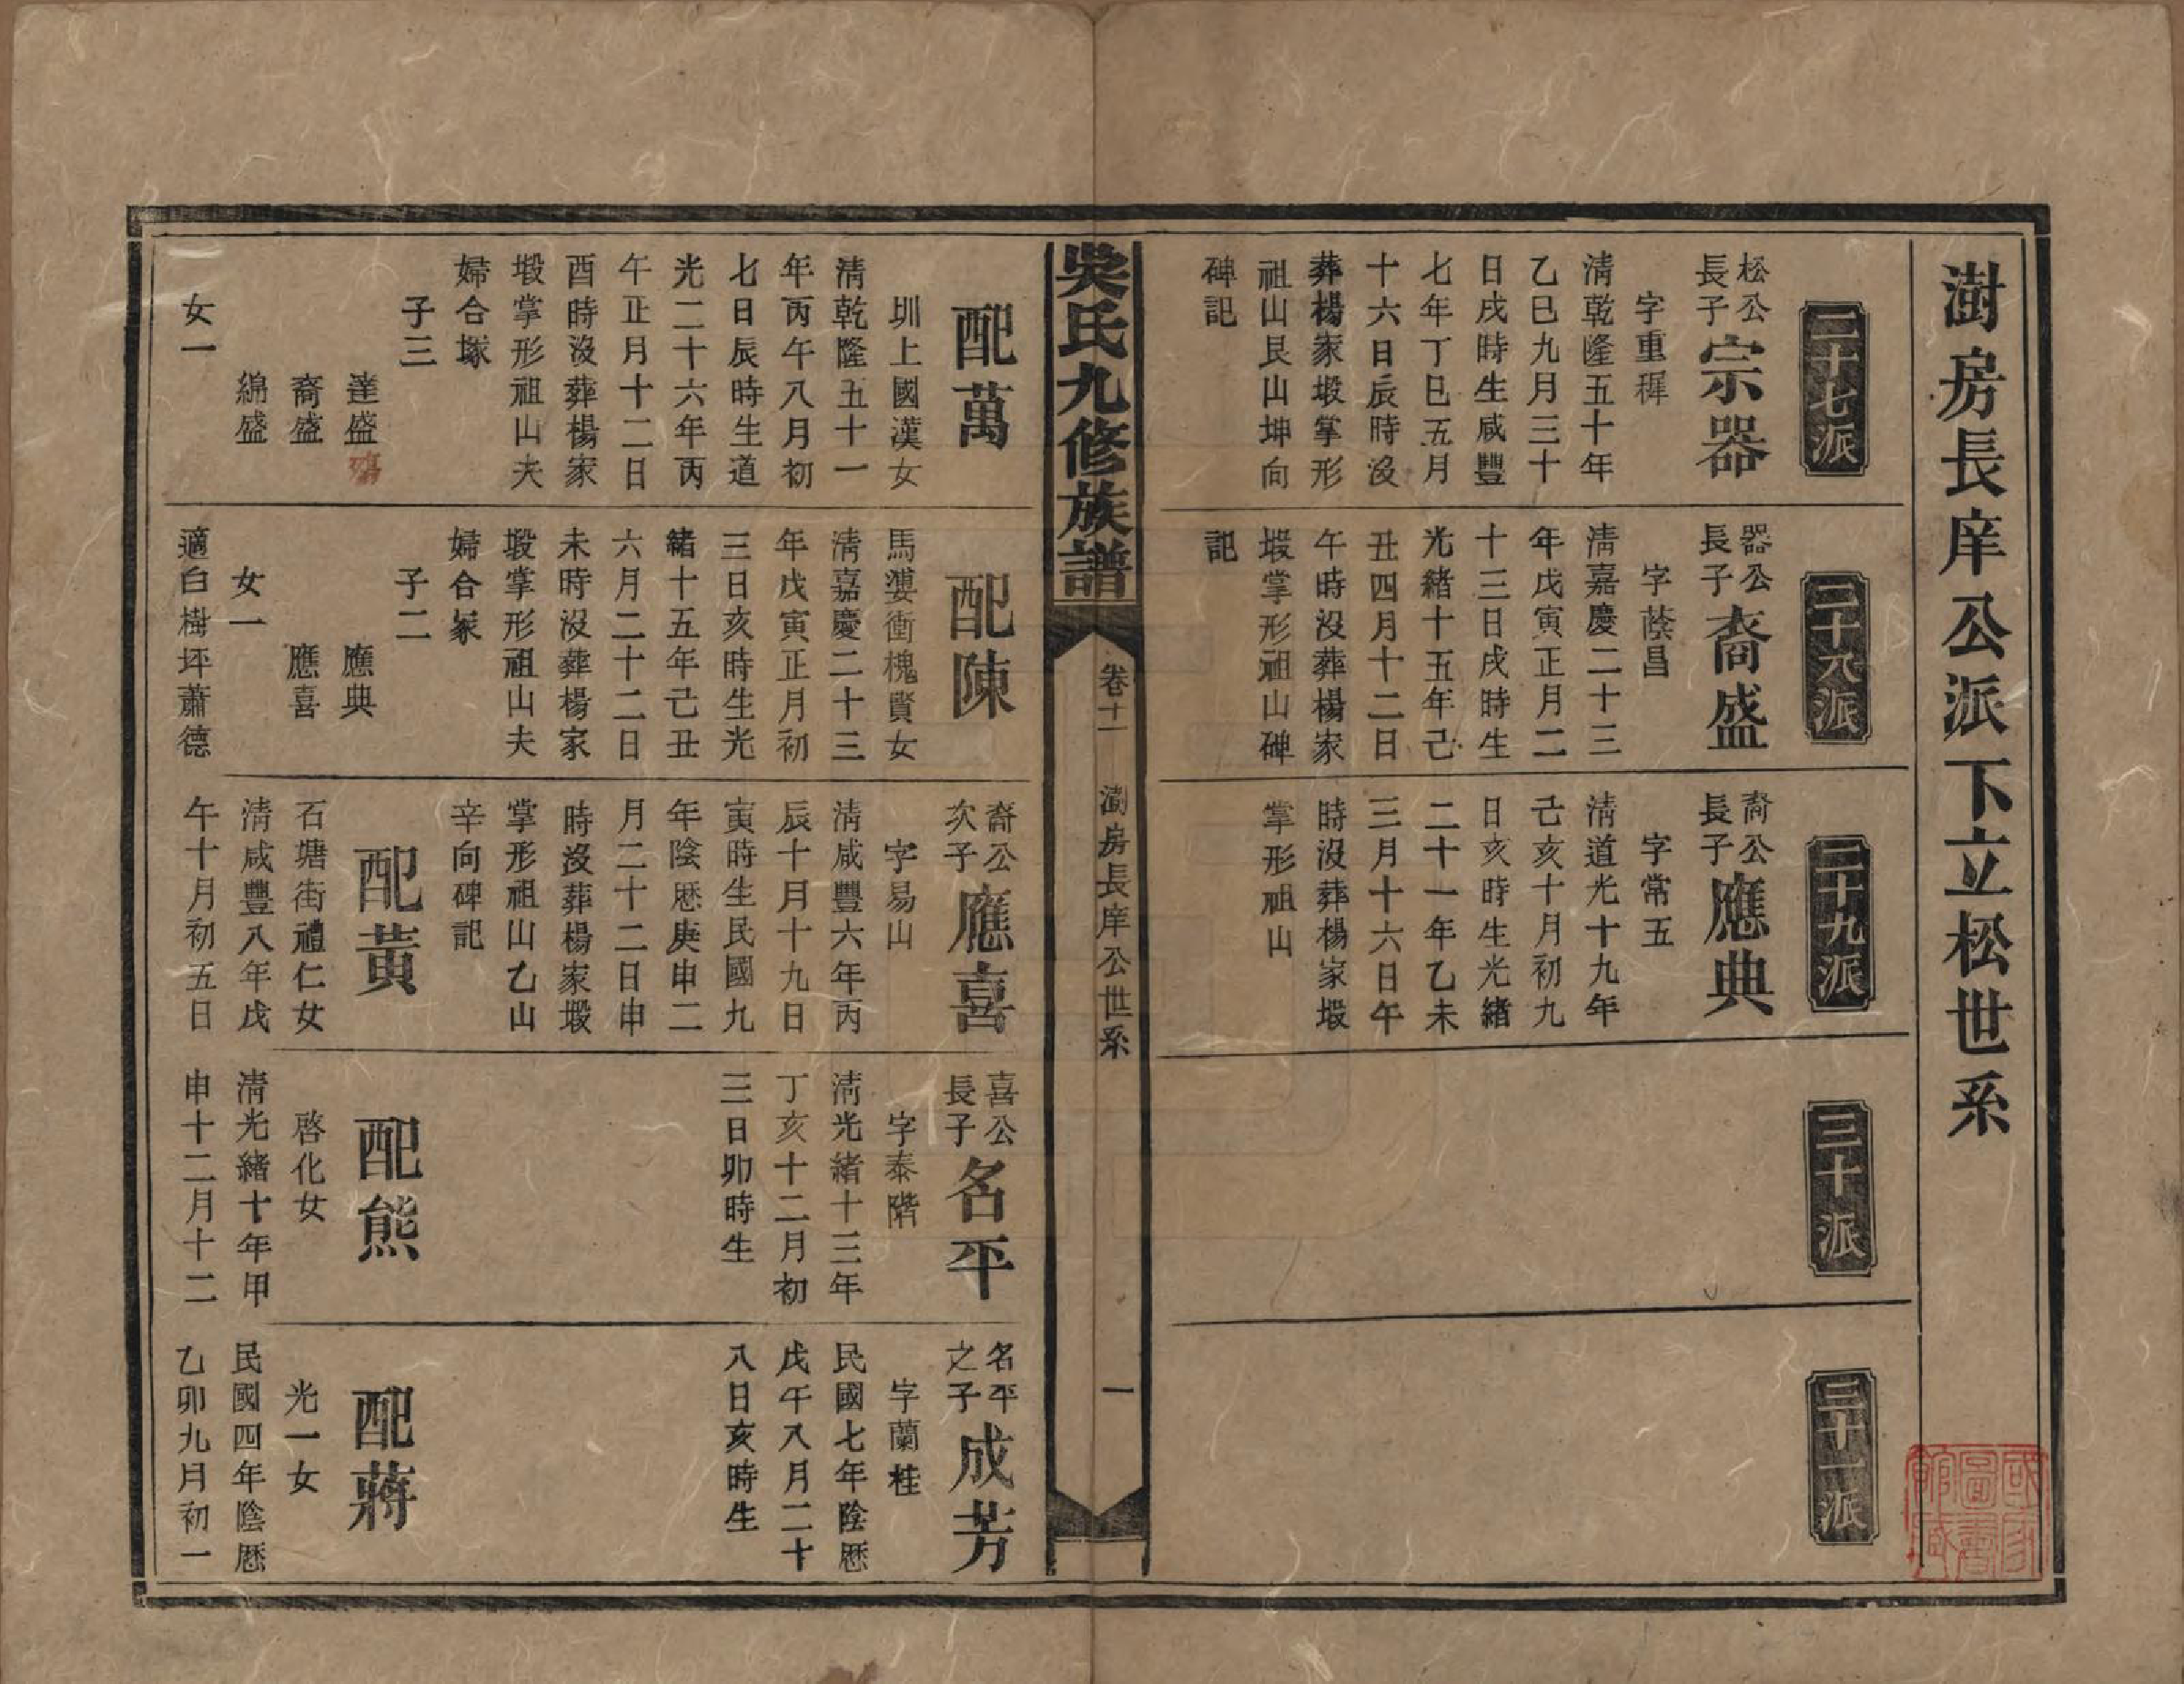 澍房長庠公派下立松世系
二十七派
松公
長子
宗器
字重穉
清乾隆五十年
乙巳九月三十
日戌時生咸豐
七年丁巳五月
十六日辰時沒
葬楊家塅掌形
祖山艮山坤向
碑記
二十八派
器公
長子
裔盛
字蔭昌
清嘉慶二十三
年戊寅正月二
十三日戌時生
光緒十五年己
丑四月十二日
午時沒葬楊家
塅掌形祖山碑
記
二十九派
裔公
長子
應典
字常五
清道光十九年
己亥十月初九
日亥時生光緒
二十一年乙未
三月十六日午
時沒葬楊家塅
掌形祖山
三十派
三十一派
吳氏九修族譜
卷十一
澍房長庠公世系
一
配萬
圳上國漢女
清乾隆五十一
年丙午八月初
七日辰時生道
光二十六年丙
午正月十二日
酉時沒葬楊家
塅掌形祖山夫
婦合塚
子三
達盛殤
裔盛
綿盛
女一
配陳
馬㜢衝槐賢女
清嘉慶二十三
年戊寅正月初
三日亥時生光
緒十五年己丑
六月二十二日
未時沒葬楊家
塅掌形祖山夫
婦合冢
子二
應典
應喜
女一
適白樹坪蕭德
裔公
次子
應喜
字易山
清咸豐六年丙
辰十月十九日
寅時生民國九
年陰厯庚申二
月二十二日申
時沒葬楊家塅
掌形祖山乙山
辛向碑記
配黃
石塘街禮仁女
清咸豐八年戊
午十月初五日
喜公
長子
名平
字泰階
清光緒十三年
丁亥十二月初
三日卯時生
配熊
啓化女
清光緒十年甲
申十二月十二
名平
之子
成芳
字蘭桂
民國七年陰厯
戊午八月二十
八日亥時生
配蔣
光一女
民國四年陰厯
乙卯九月初一
國家
圖書
館藏